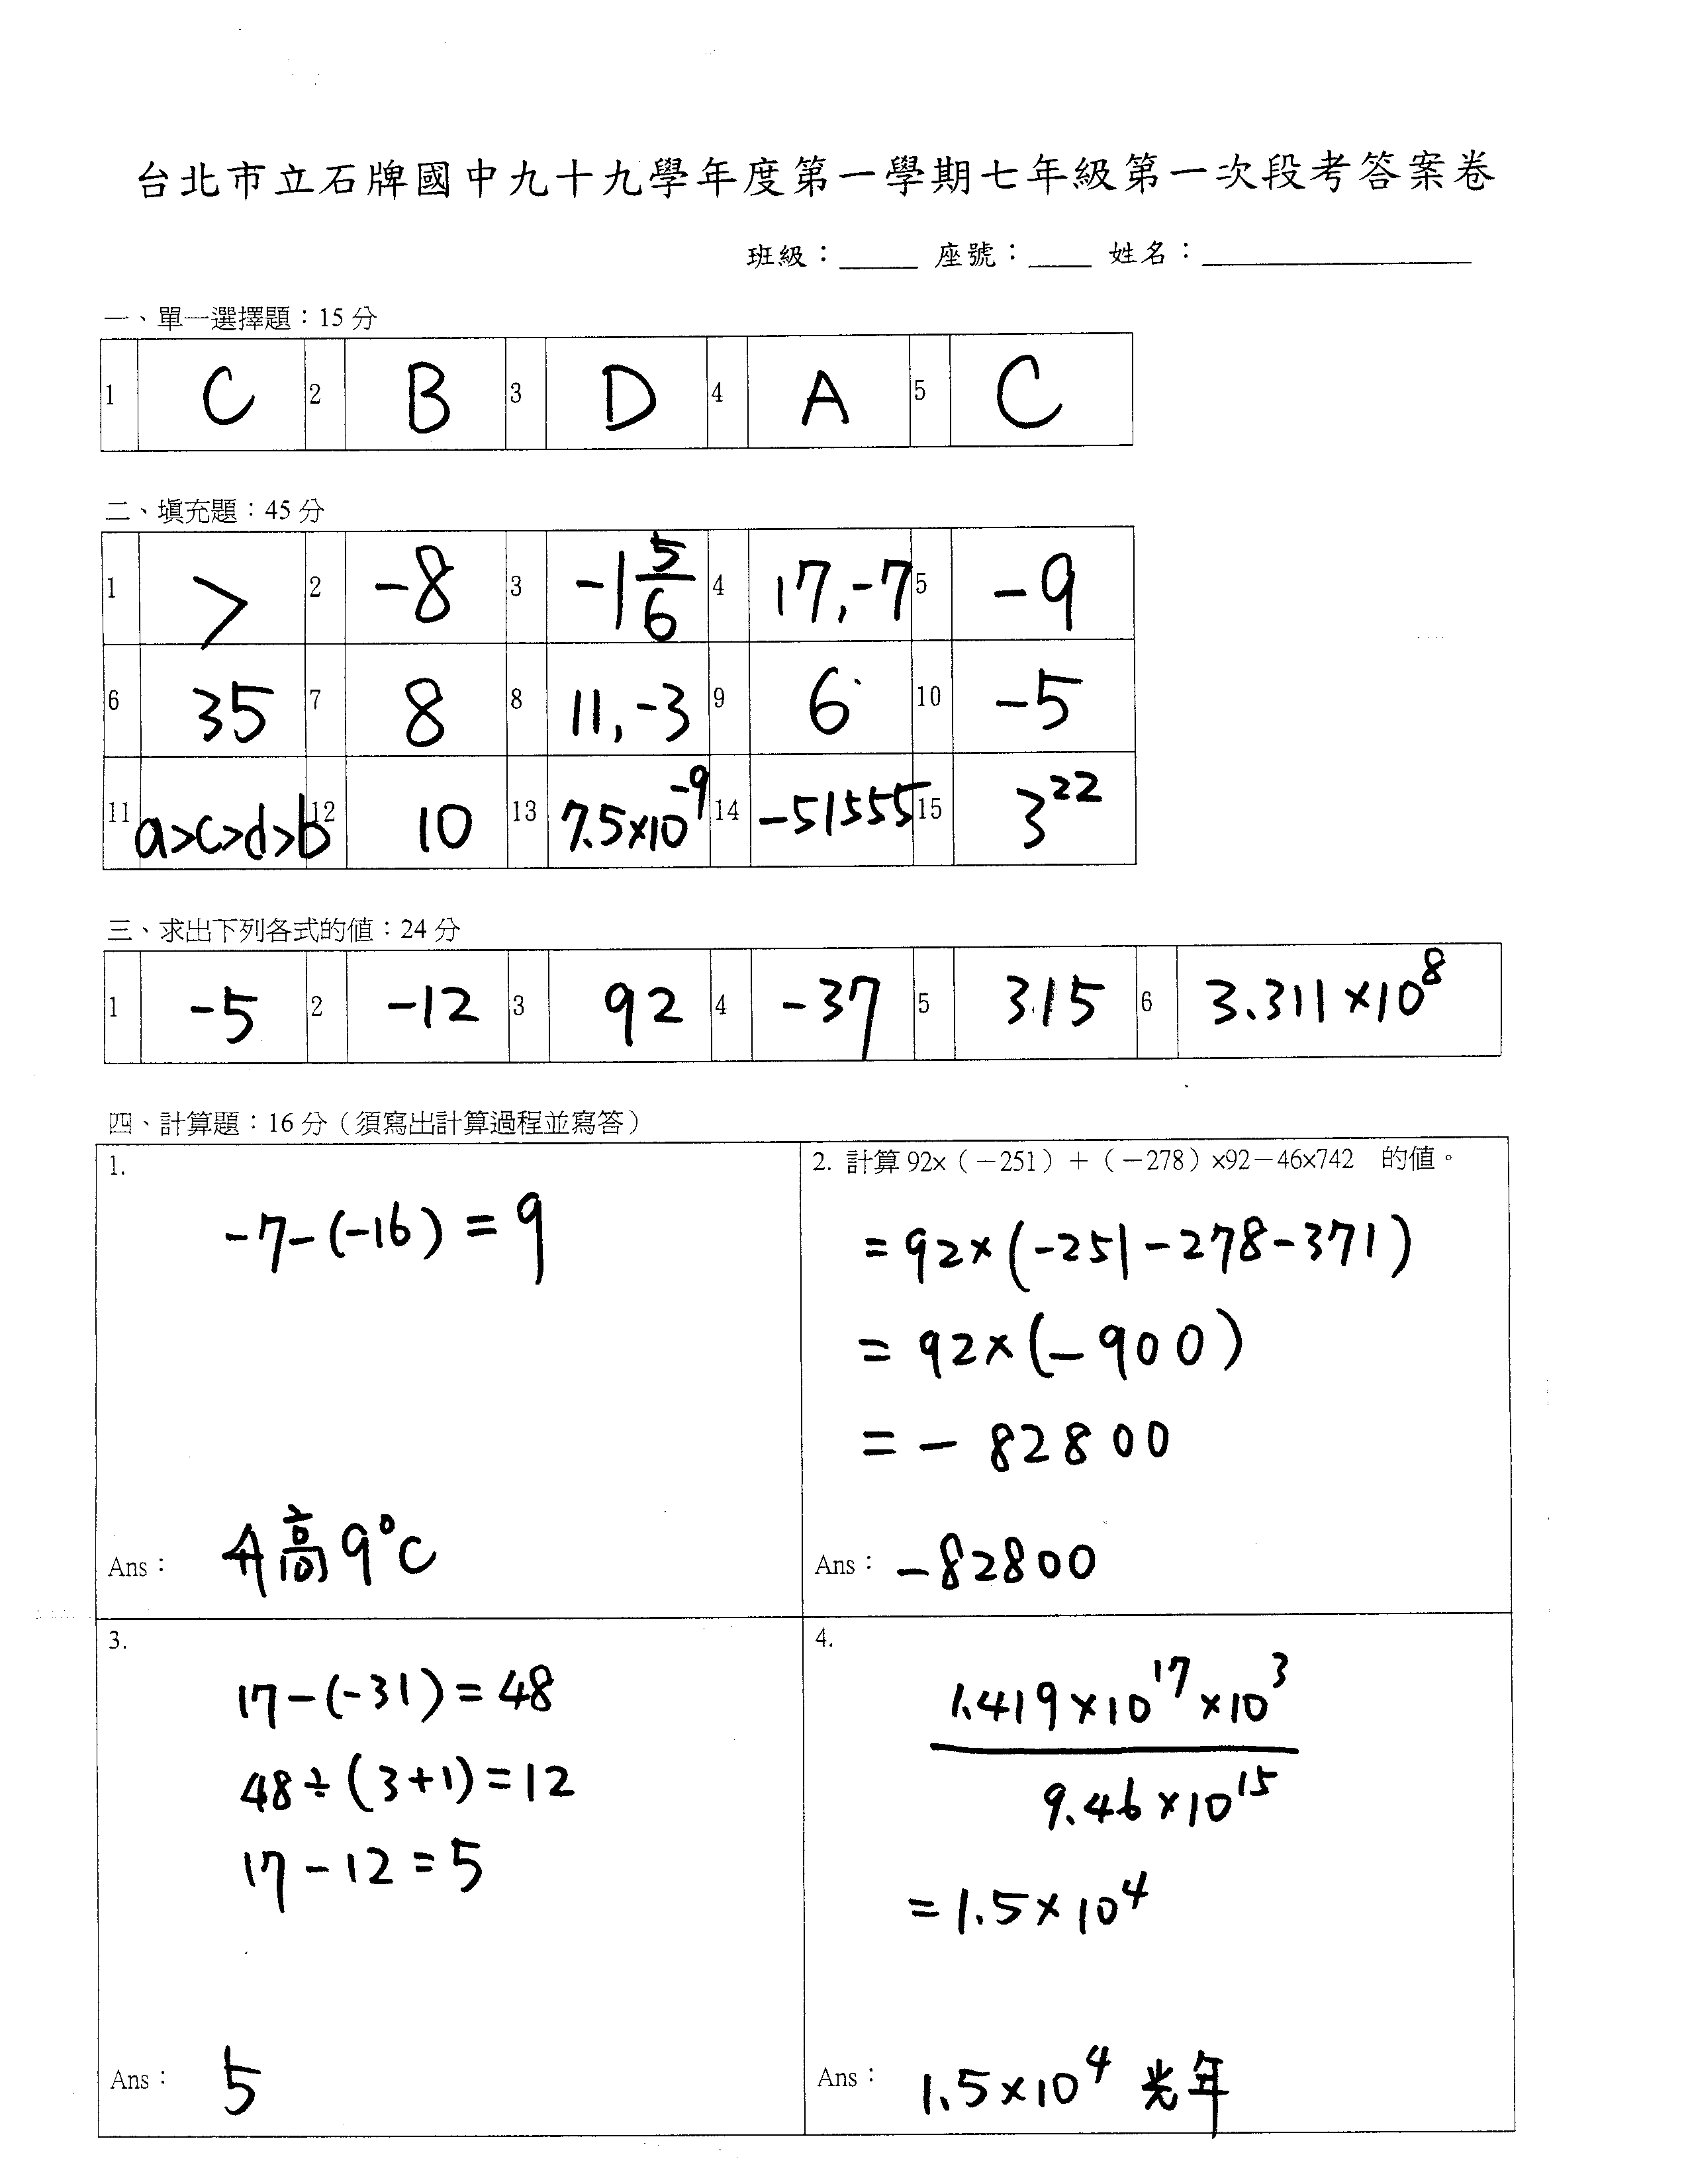 台北市立石牌國中九十九學年度第一學期七年級第一次段考答案卷
班級：_____ 座號：____ 姓名：_________________
一、單一選擇題：15 分
1 C 2 B 3 D 4 A 5 C
二、填充題：45 分
1 > 2 -8 3 -1 5/6 4 17,-7 5 -9
6 35 7 8 8 11,-3 9 6 10 -5
11 a>c>d>b 12 10 13 7.5×10⁻⁹ 14 -51555 15 3²²
三、求出下列各式的値：24 分
1 -5 2 -12 3 92 4 -37 5 315 6 3.311×10⁸
四、計算題：16 分（須寫出計算過程並寫答）
1.
-7-(-16)=9
Ans： 升高9°C
2. 計算 92×（－251）＋（－278）×92－46×742 的値。
=92×(-251-278-371)
=92×(-900)
=-82800
Ans： -82800
3.
17-(-31)=48
48÷(3+1)=12
17-12=5
Ans： 5
4.
1.419×10¹⁷×10³
9.46×10¹⁵
=1.5×10⁴
Ans： 1.5×10⁴ 光年